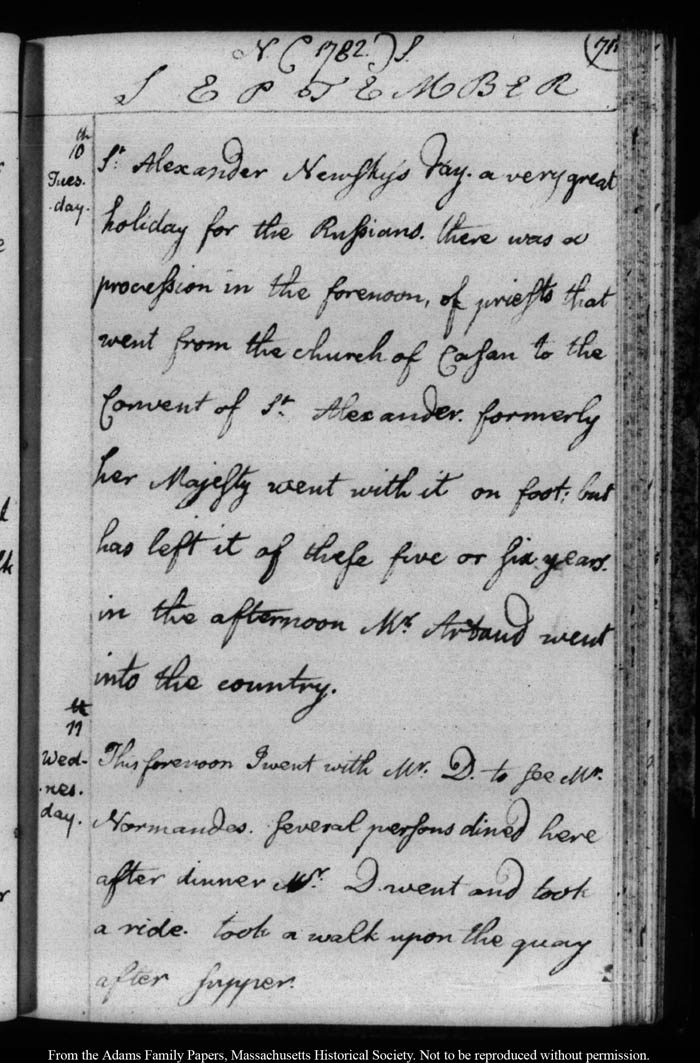 N. (1782.) S. (71
SEPTEMBER
th
10
Tues.
day.
St. Alexander Newsky's Day. a very great
holiday for the Russians. there was a
procession in the forenoon, of priests that
went from the church of Casan to the
Convent of St. Alexander. formerly
her Majesty went with it on foot; but
has left it of these five or six years.
in the afternoon Mr. Artaud went
into the country.
th
11
Wed-
nes.
day.
This forenoon I went with Mr. D. to see Mr.
Normandes. Several persons dined here
after dinner Mr. D. went and took
a ride. took a walk upon the quay
after supper.
From the Adams Family Papers, Massachusetts Historical Society. Not to be reproduced without permission.